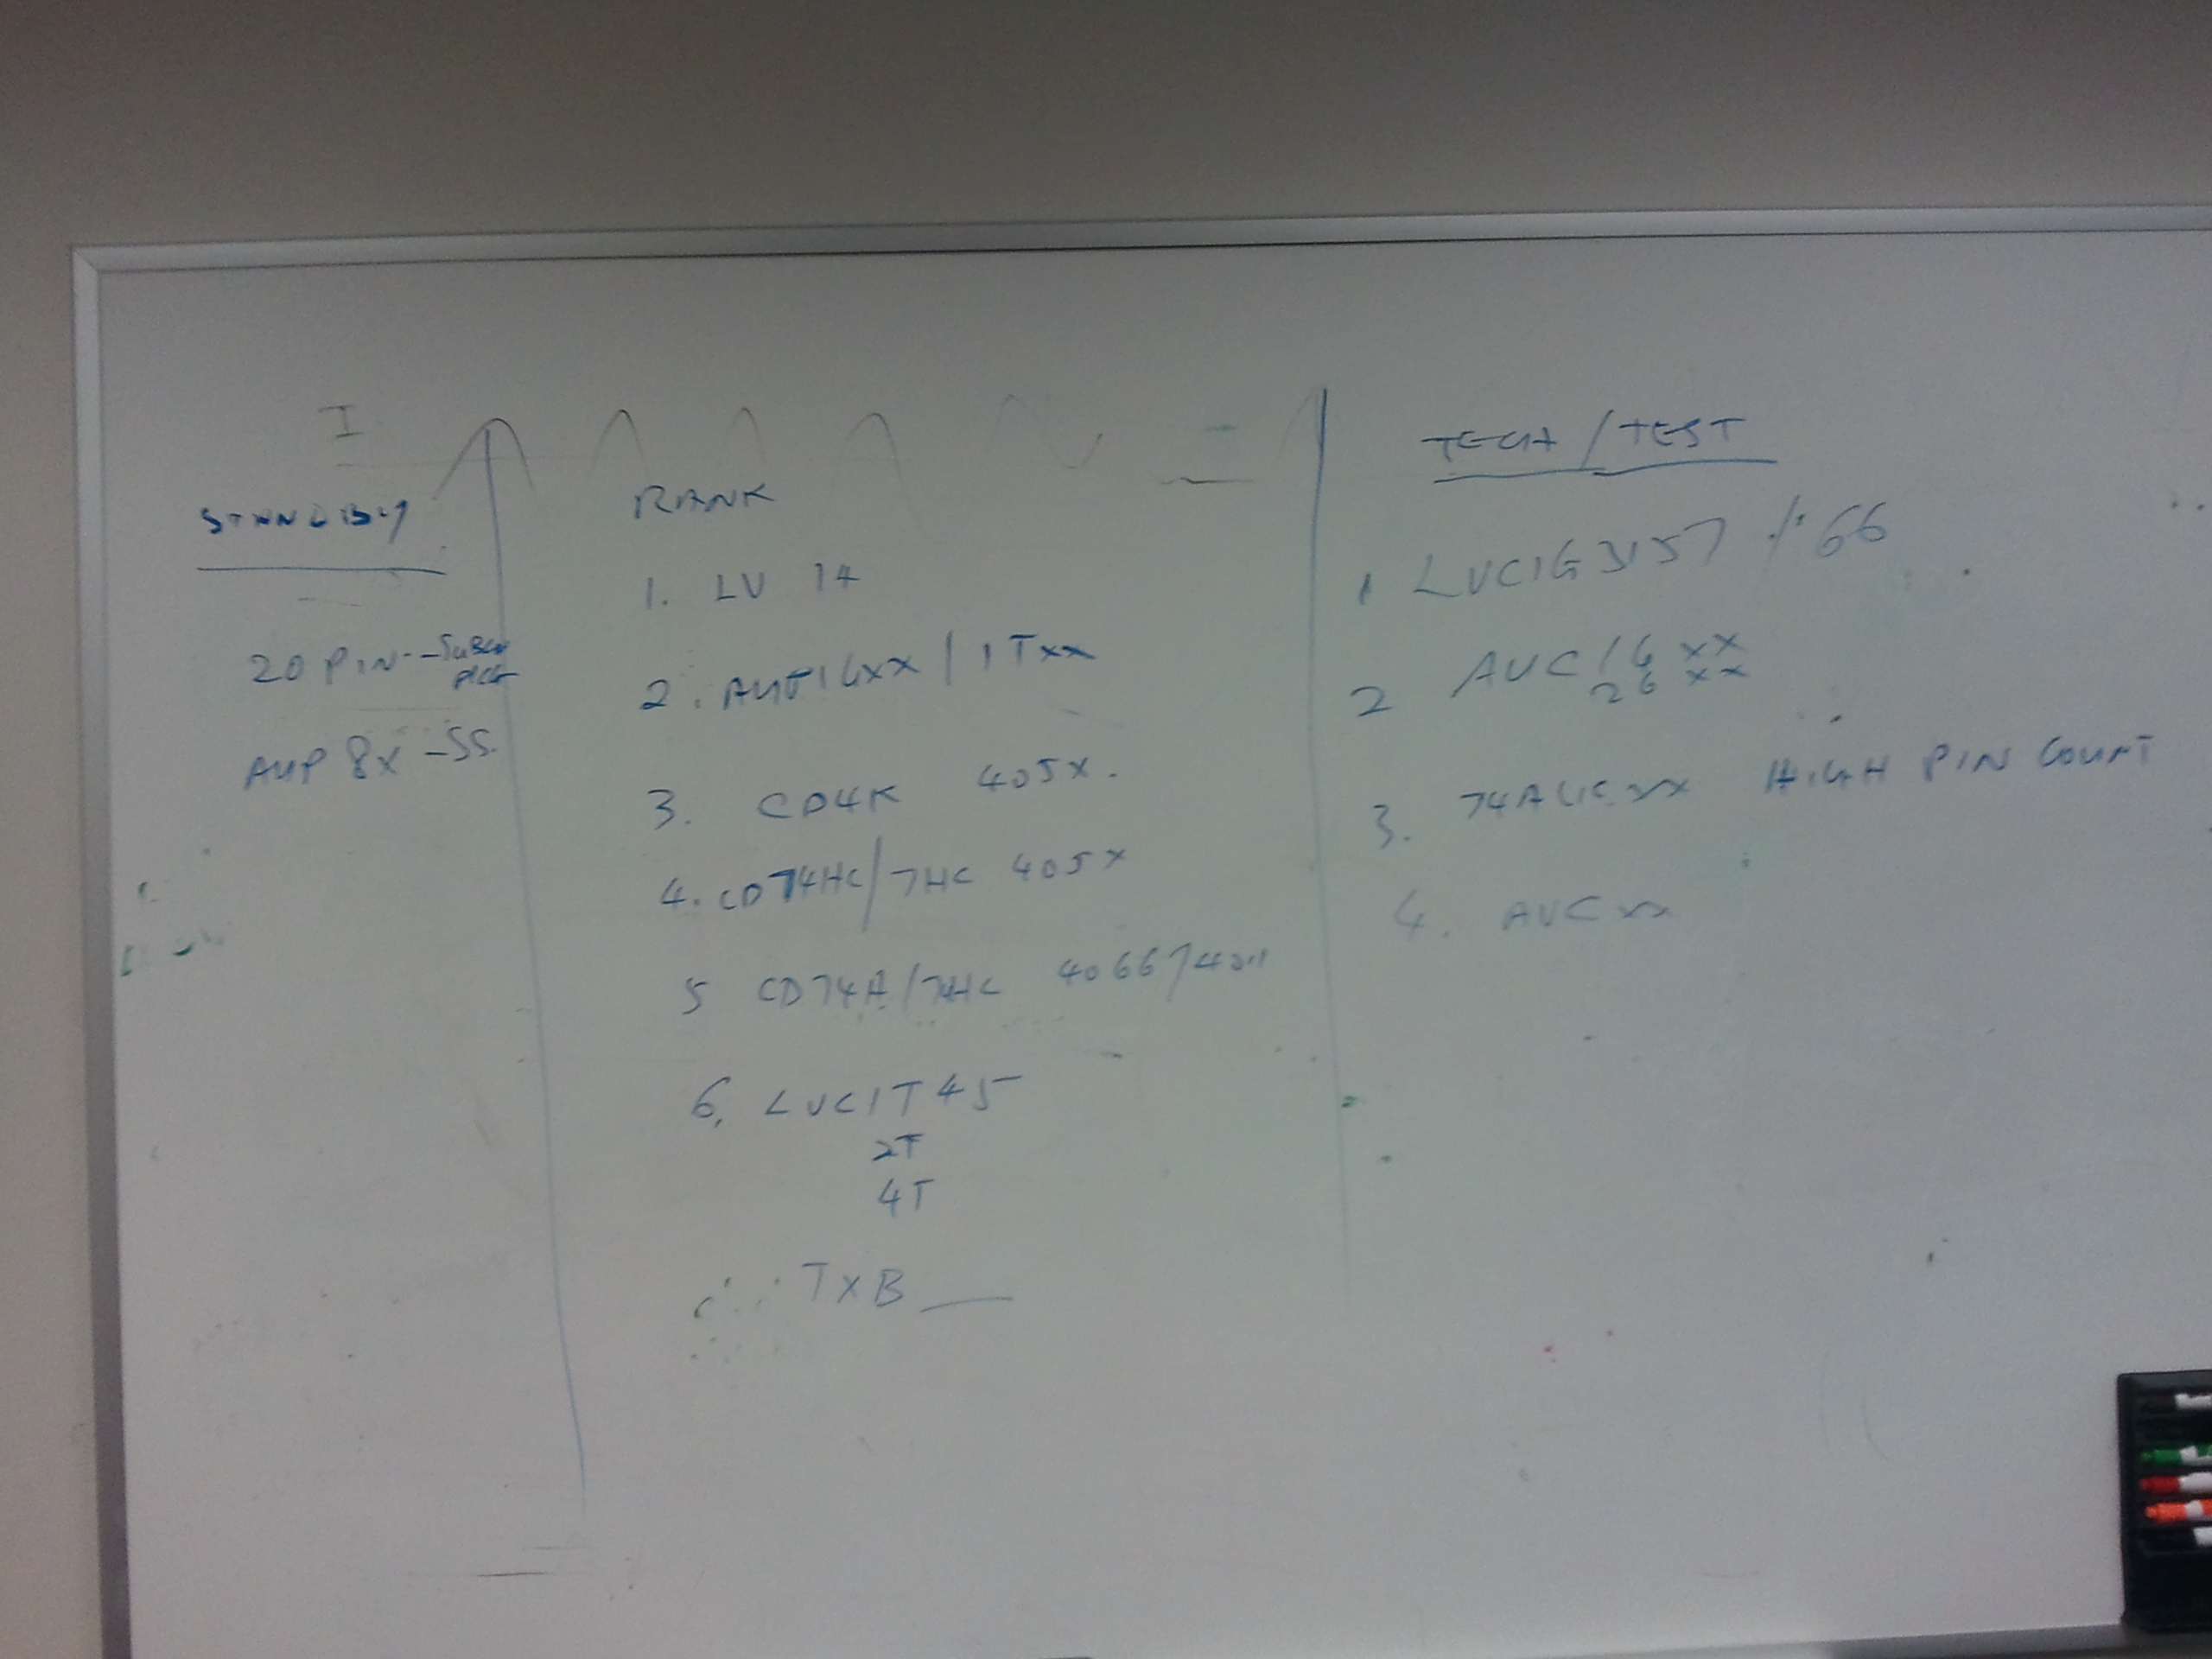 I
STANDBY
20 PIN -
AUP 8X - SS
RANK
1. LV 14
2. AUP1Gxx / 1Txx
3. CD4K 405X.
4. CD74HC/7HC 405X
5 CD74H/74HC 4066/
6. LVC1T45
2T
4T
TXB __
TECH / TEST
1 LVC1G3157 / 66
2 AUC1G XX
2G XX
3. xx HIGH PIN COUNT
4. AVCxx